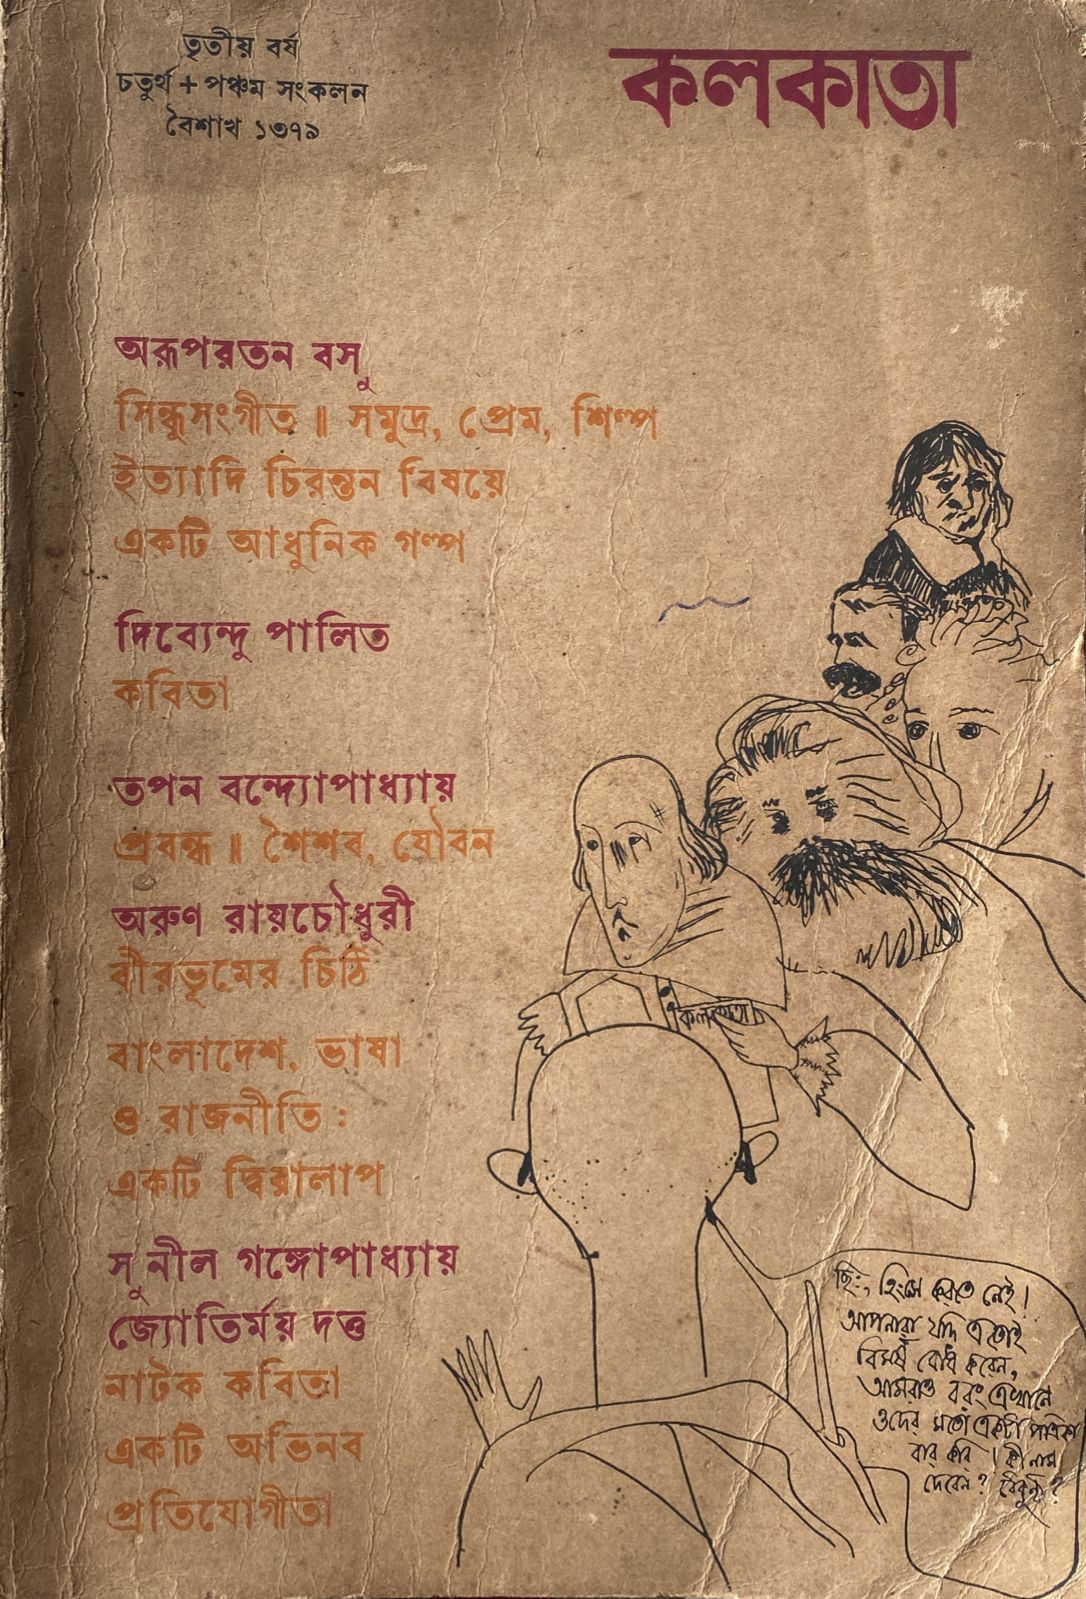 তৃতীয় বর্ষ
চতুর্থ + পঞ্চম সংকলন
বৈশাখ ১৩৭৯
কলকাতা
অরূপরতন বসু
সিন্ধুসংগীত ॥ সমুদ্র, প্রেম, শিল্প
ইত্যাদি চিরন্তন বিষয়ে
একটি আধুনিক গল্প
দিব্যেন্দু পালিত
কবিতা
তপন বন্দ্যোপাধ্যায়
প্রবন্ধ ॥ শৈশব, যৌবন
অরুণ রায়চৌধুরী
বীরভূমের চিঠি
বাংলাদেশ, ভাষা
ও রাজনীতি :
একটি দ্বিরালাপ
সুনীল গঙ্গোপাধ্যায়
জ্যোতির্ময় দত্ত
নাটক কবিতা
একটি অভিনব
প্রতিযোগীতা
কলকাতা
ছিঃ, হিংসে করতে নেই!
আপনারা যদি এতোই
বিমর্ষ বোধ করেন,
আমরাও বরং এখানে
ওদের মতো একটা পত্রিকা
বার করি । কী নাম
দেবেন? বৈকুন্ঠ?